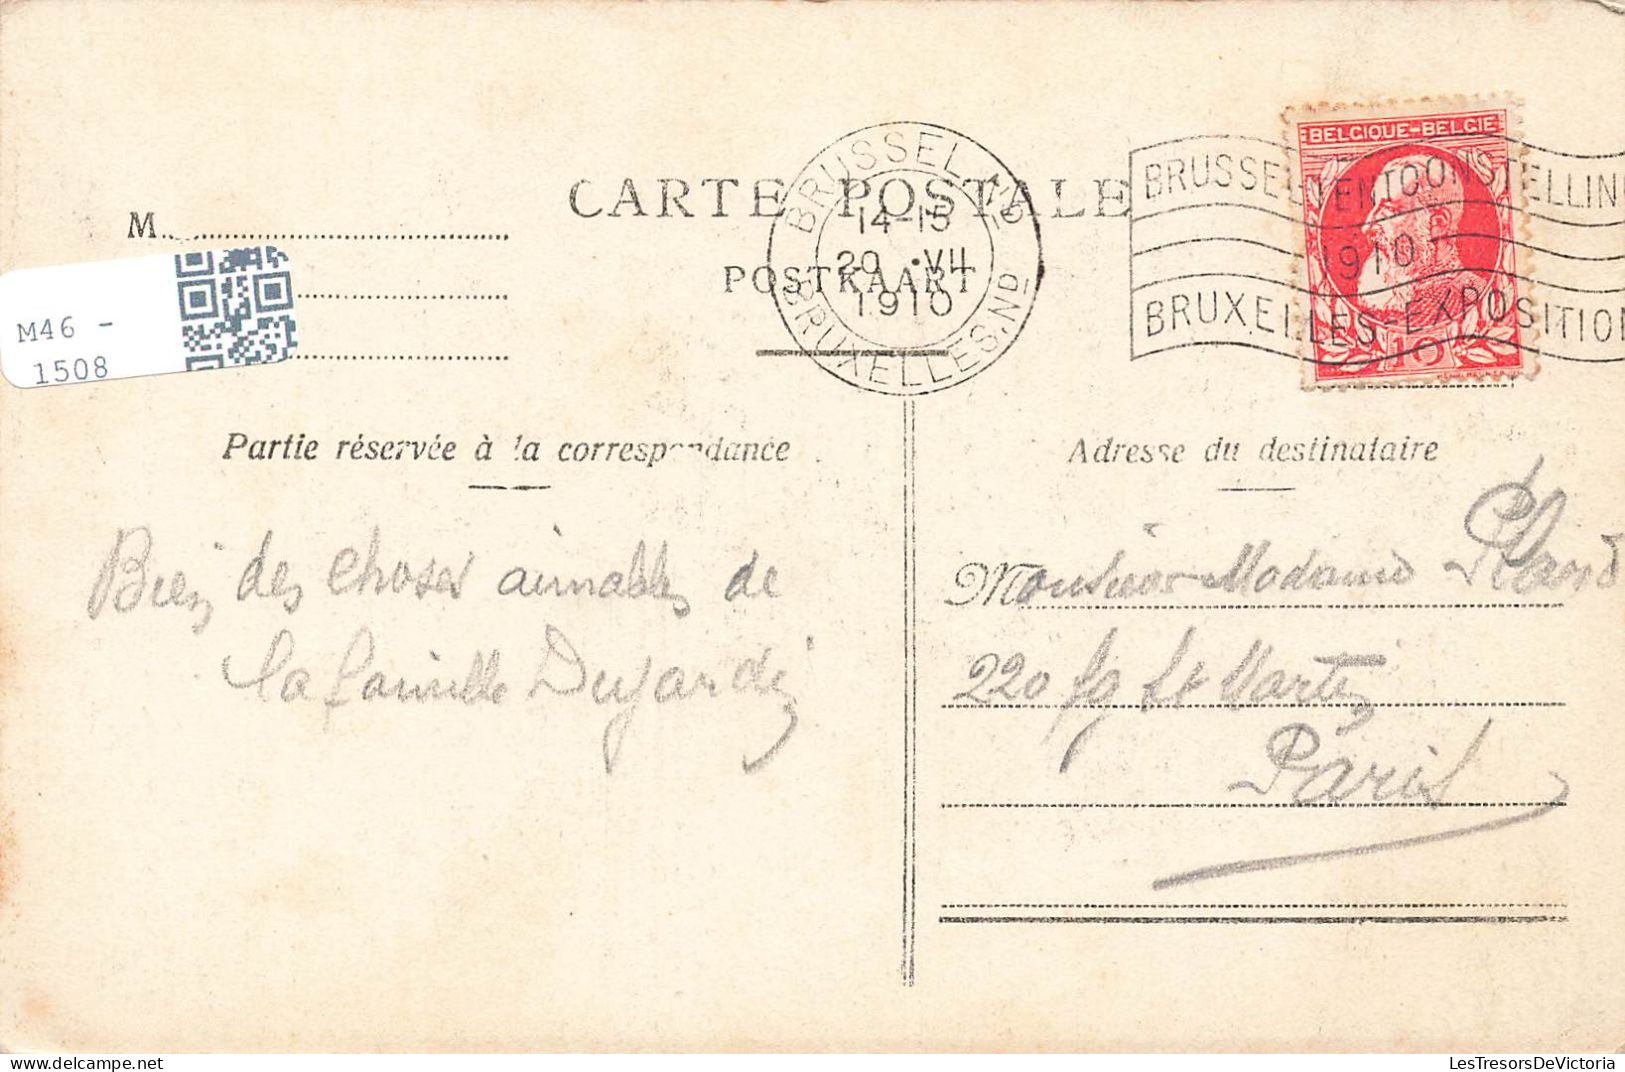 CARTE POSTALE
POSTKAART
M
M46 -
1508
BRUSSEL
14-15
29 •VII
1910
BRUXELLES.ND
BRUSSEL TENTOONSTELLING
1910
BRUXELLES-EXPOSITION
BELGIQUE-BELGIE
10
Partie réservée à la correspondance
Adresse du destinataire
Bien des choses aimables de
la famille Dujardin
Monsieur Madame
220 fg St Martin
Paris
LesTresorsDeVictoria